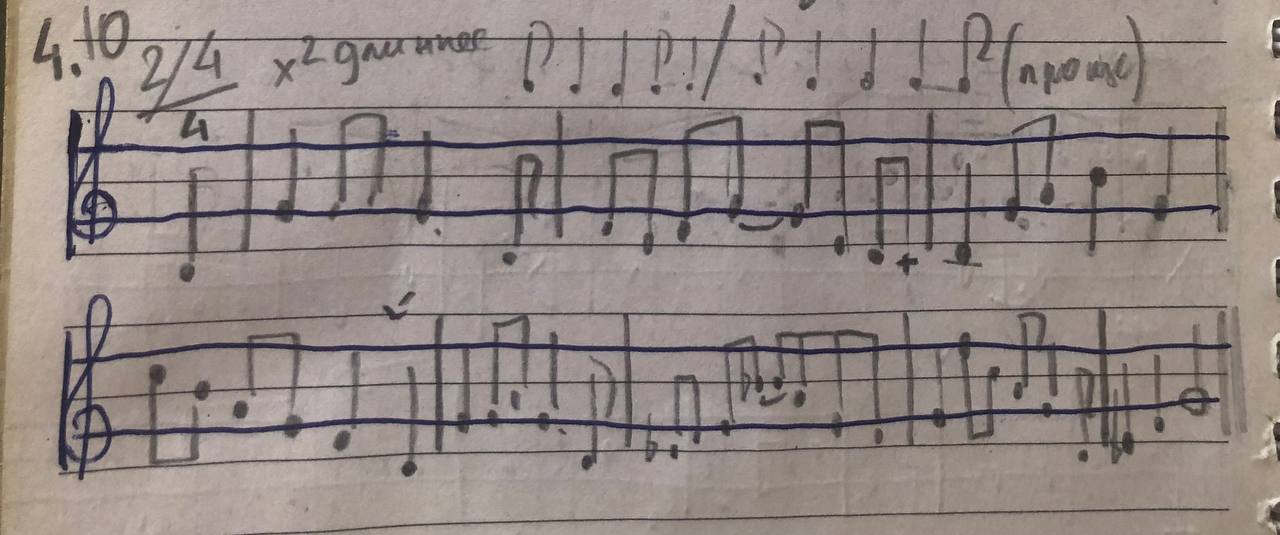 4.10 2/4 x2 длиннее (проще)
4